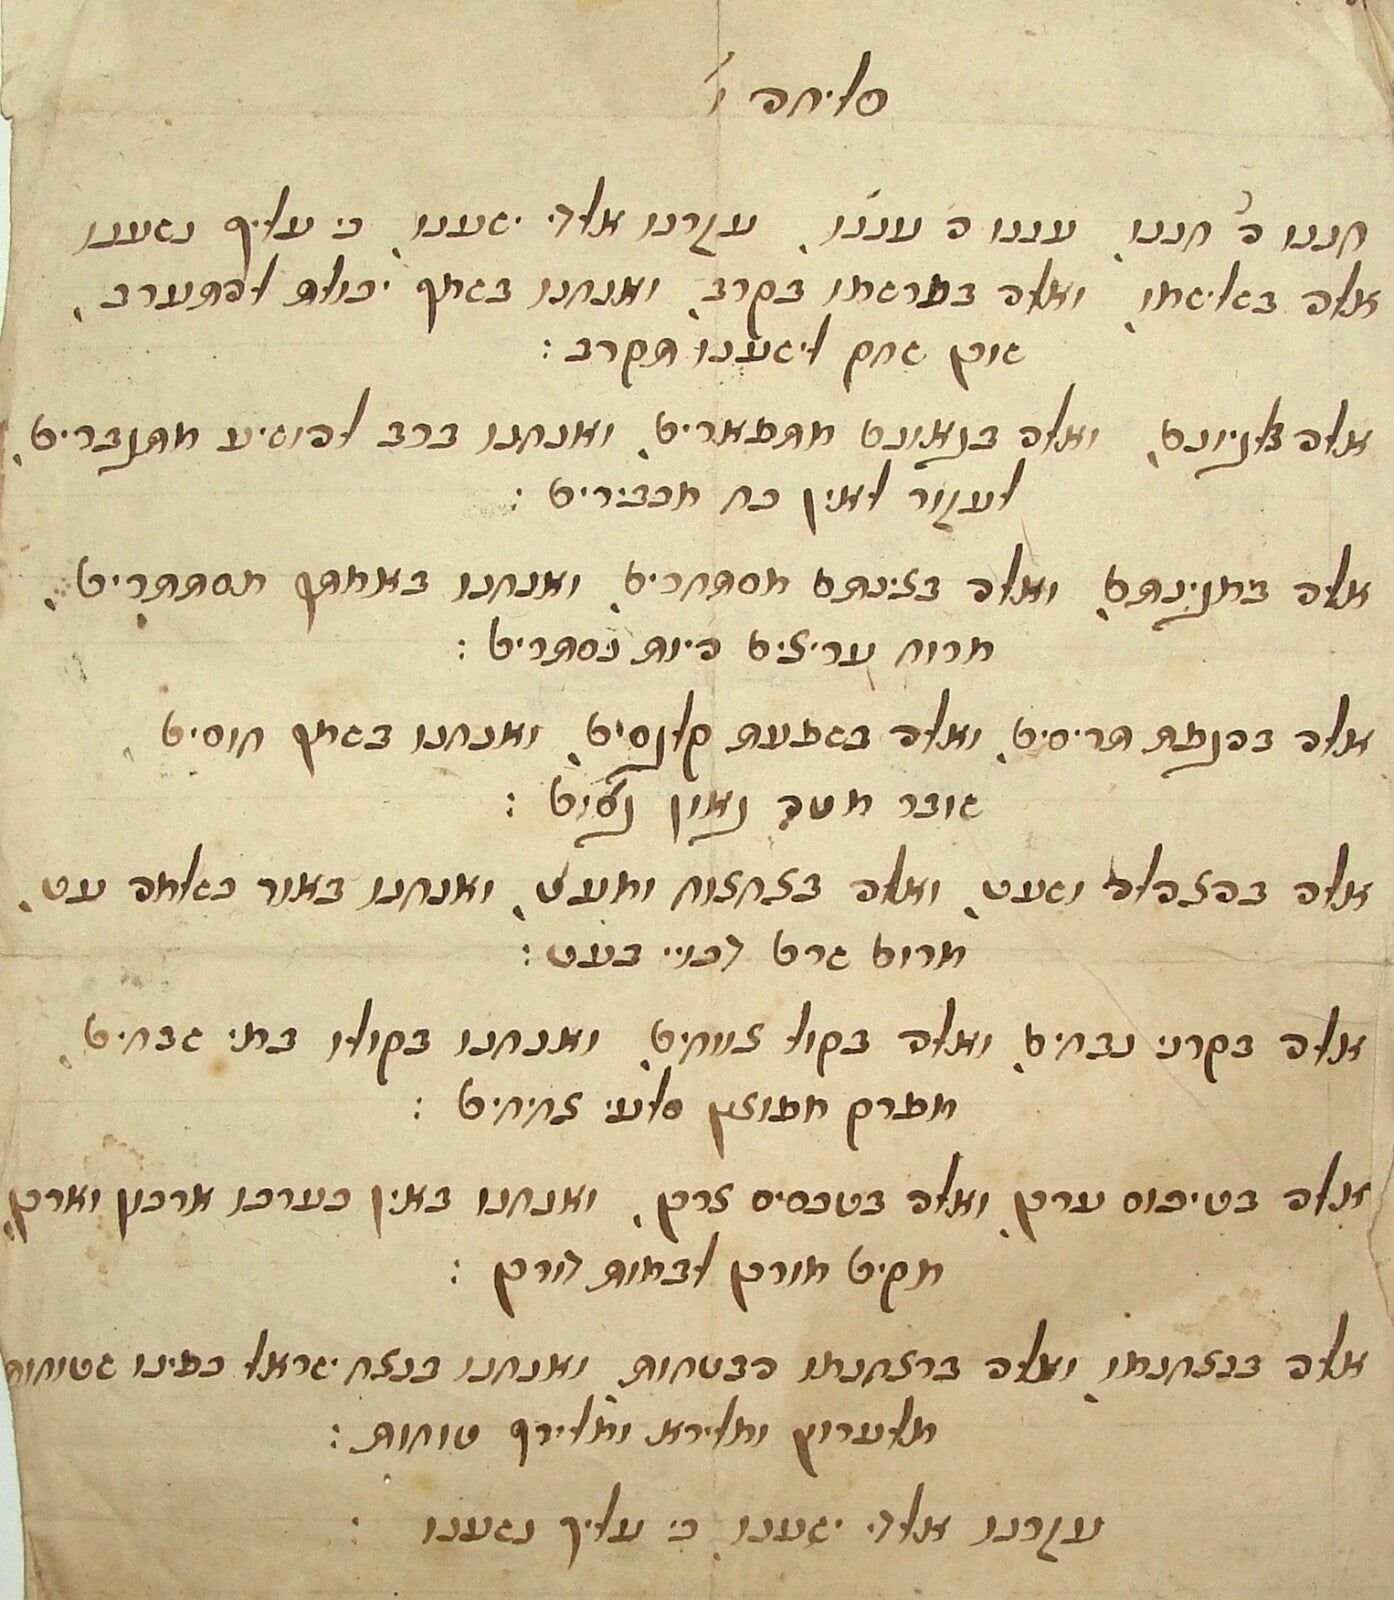 סליחה ו'
חננו ה' חננו, עננו ה עננו, עזרנו אלדי ישענו, כי עליך נשענו
אלה בשלישמו, ואלה בפרשמו בקרב, ואנחנו בשמך יכולת להתערב,
שוכן שחק לישענו תקרב :
אלה ואלה בגאונם מתפארים, ואנחנו ברב להושיע מתגברים,
לעזור לאין כח מכבירים :
אלה במגינתם, ואלה בצינתם מסתחרים, ואנחנו באמתך מסתתרים,
מרוח עריצים היות נסתרים :
אלה בהגפת תריסים, ואלה בשפעת קלגסים, ואנחנו בשמך חוסים,
שובר מטה גאון גסים :
אלה בהצהלת ושעט, ואלה בצחצוח ומעט, ואנחנו באור כשלמה עט,
מרום בעט :
אלה בקרני נגחים, ואלה בקול צווחים, ואנחנו בקולו בתי שבחים,
מפרק מפוצץ סלעי צחיחים :
אלה בטיכוס ערך, ואלה בטכסיס צרך, ואנחנו באין כערכו ארכון וארך,
מקים מורך לבמות דורך :
אלה בנצחנמו, ואלה ברצחנמו הבטחות, ואנחנו בנצח ישראל כפינו שטוחות
מלערוץ ומלירא ומלירך טוחות :
עזרנו אלדי ישענו, כי עליך נשענו :